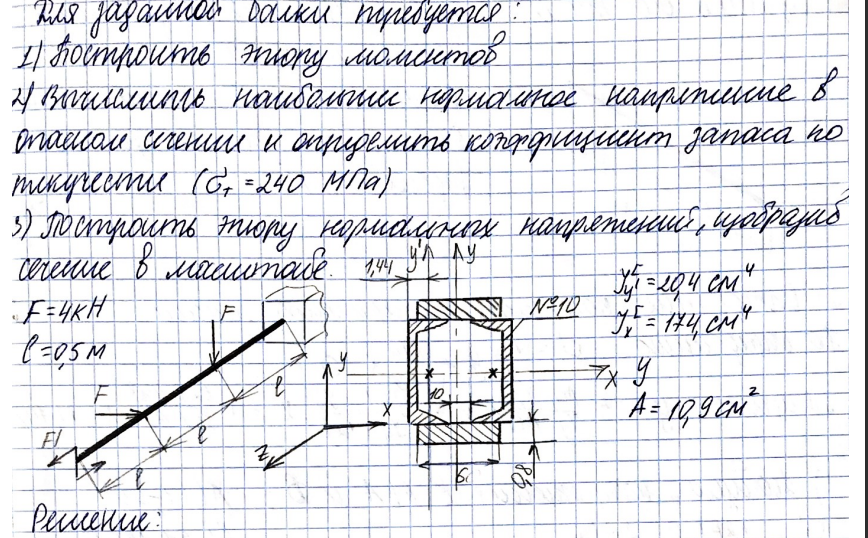 Для заданной балки требуется:
1) Построить эпюру моментов
2) Вычислить наибольшее нормальное напряжение в
опасном сечении и определить коэффициент запаса по
текучести (σт = 240 МПа)
3) Построить эпюру нормальных напряжений, изобразив
сечение в масштабе.
1,44
y'
y
F = 4кН
l = 0,5 м
F
F
Fl
l
l
l
y
x
z
№10
x
10
6
0,8
Jy'[ = 20,4 см⁴
Jx[ = 174, см⁴
У
A = 10,9 см²
Решение: